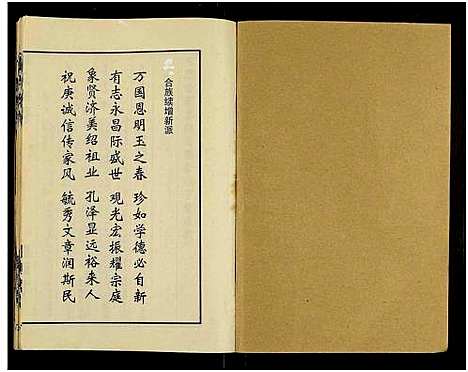 合族续增新派
万国恩明玉之春 珍如学德必自新
有志永昌际盛世 观光宏振耀宗庭
象贤济美绍祖业 孔泽显远裕来人
祝庚诚信传家风 毓秀文章润斯民